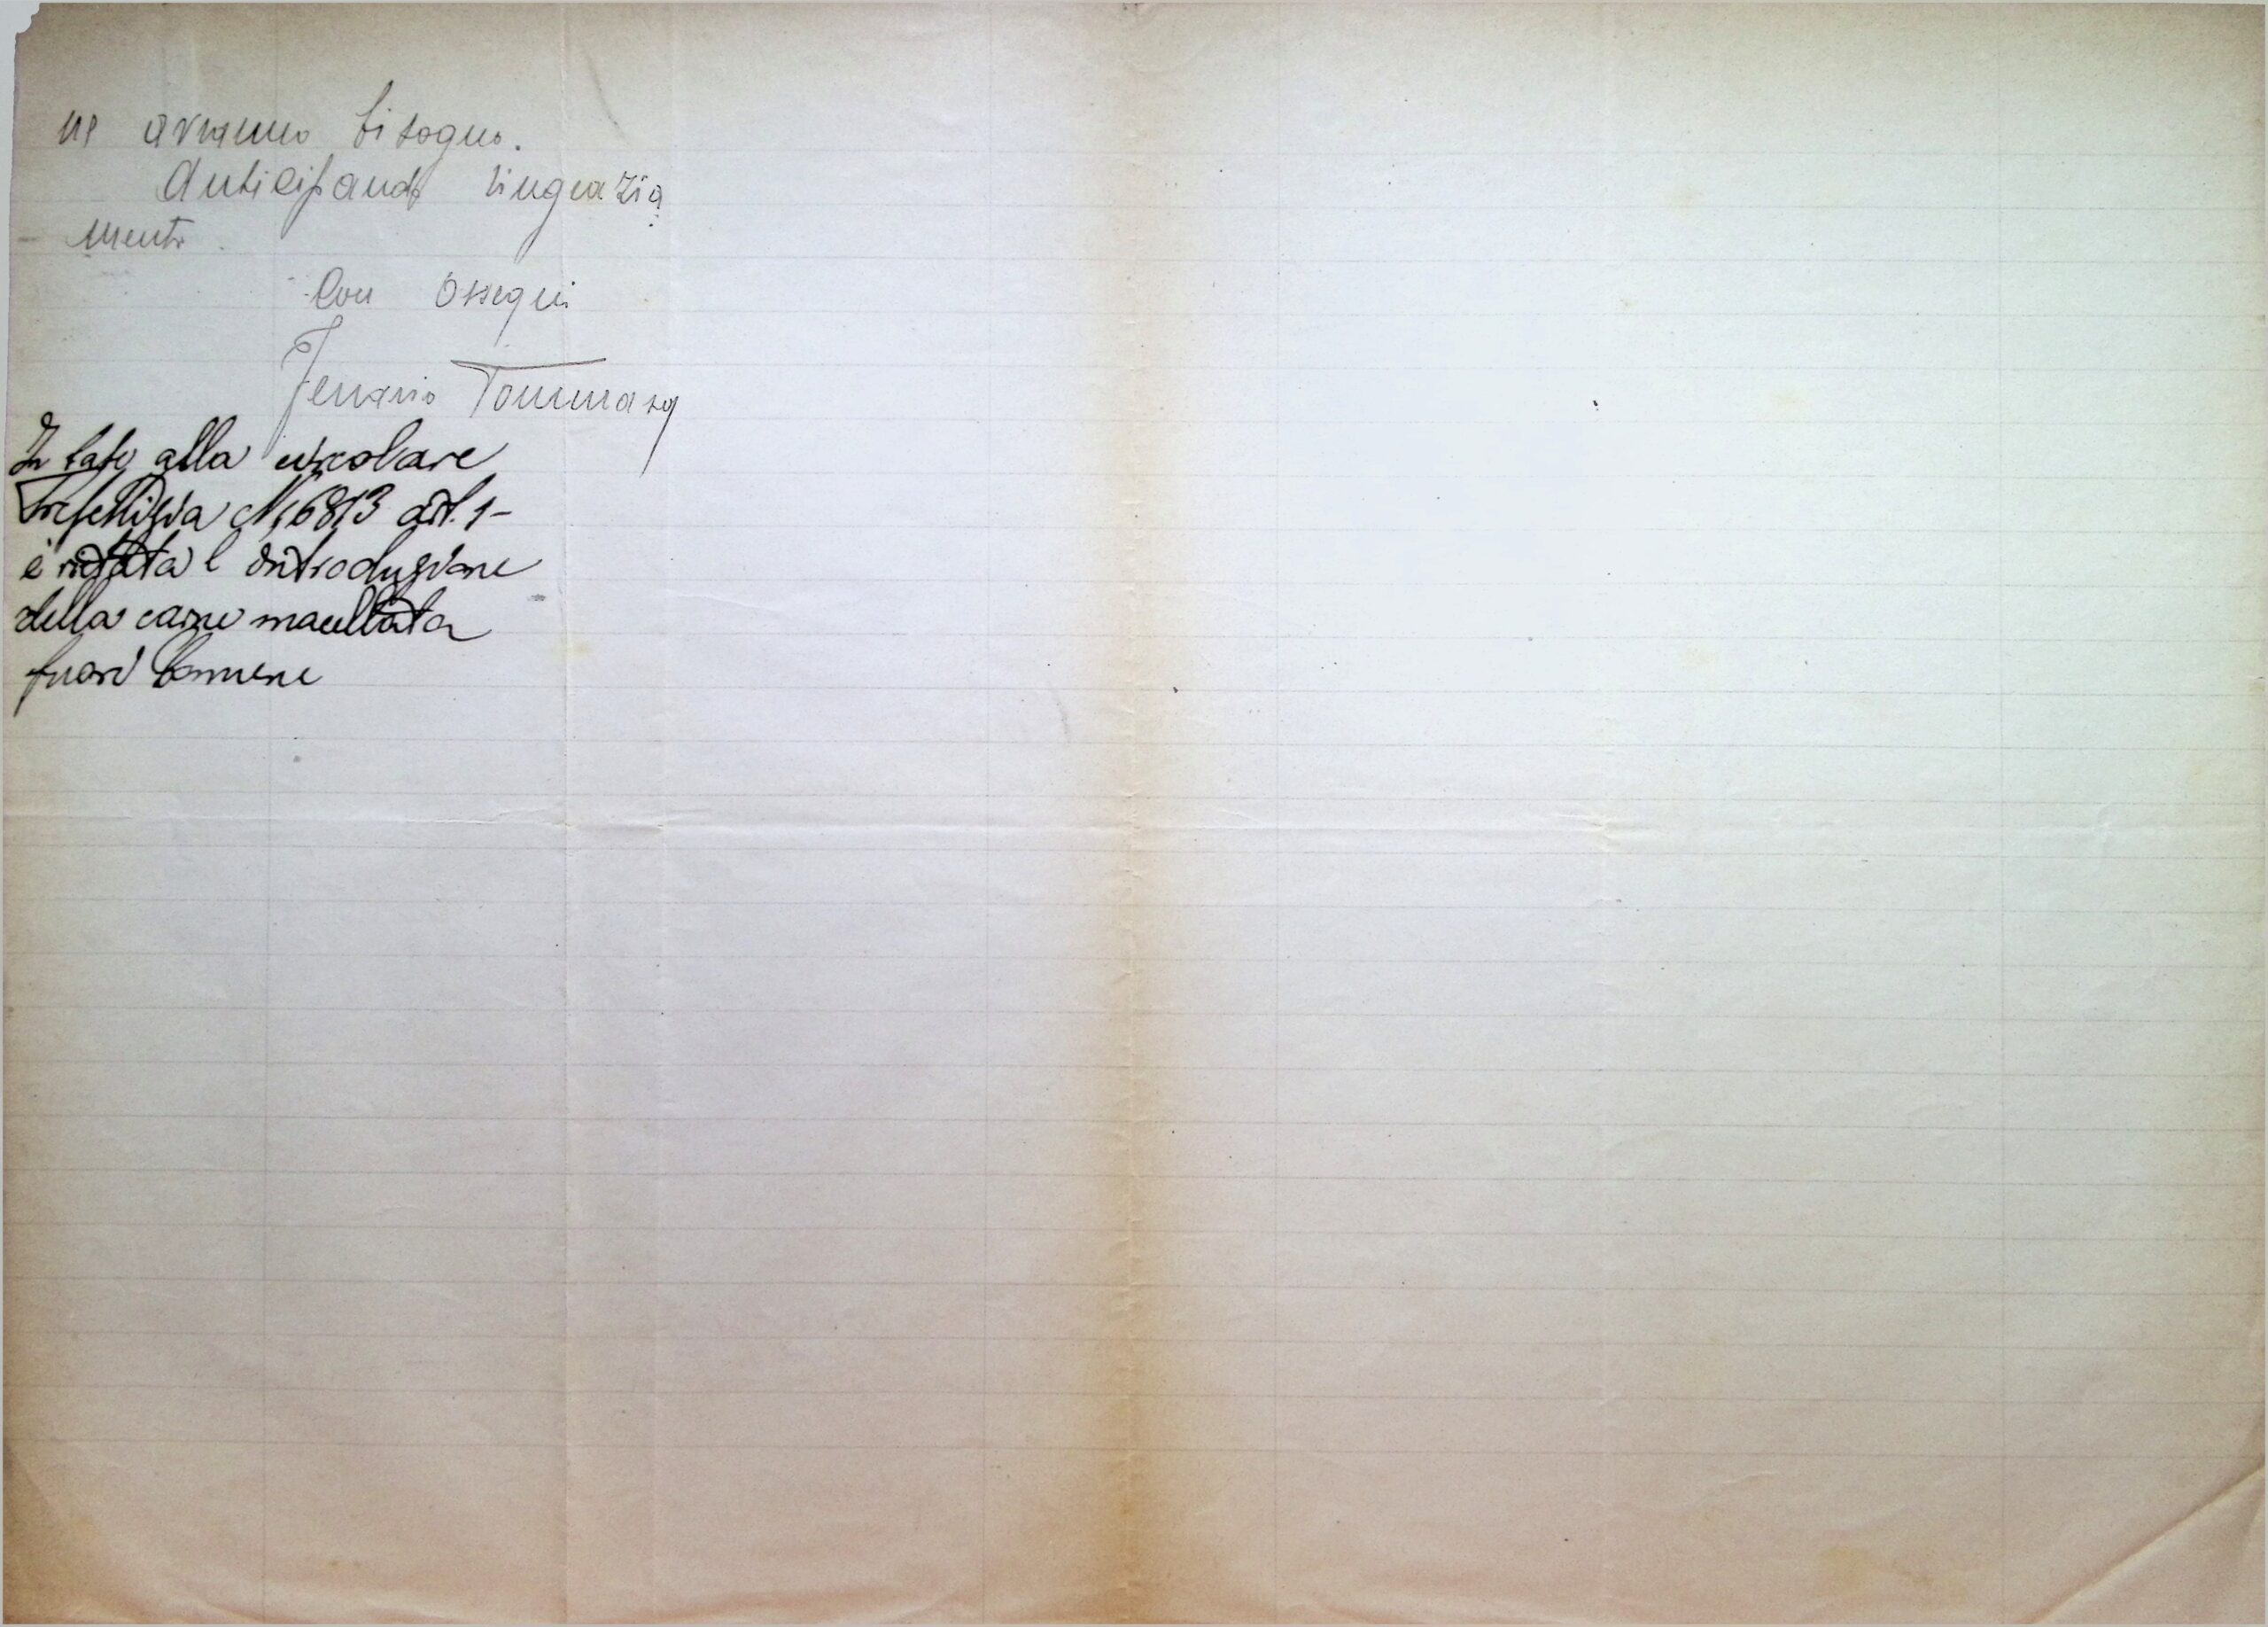 ne avranno bisogno.
Anticipando ringrazia
menti.
Con Ossequi
Ferrario Tommaso
In base alla circolare
Prefettizia N 6813 art. 1 -
è vietata l introduzione
della carne macellata
fuori Comune